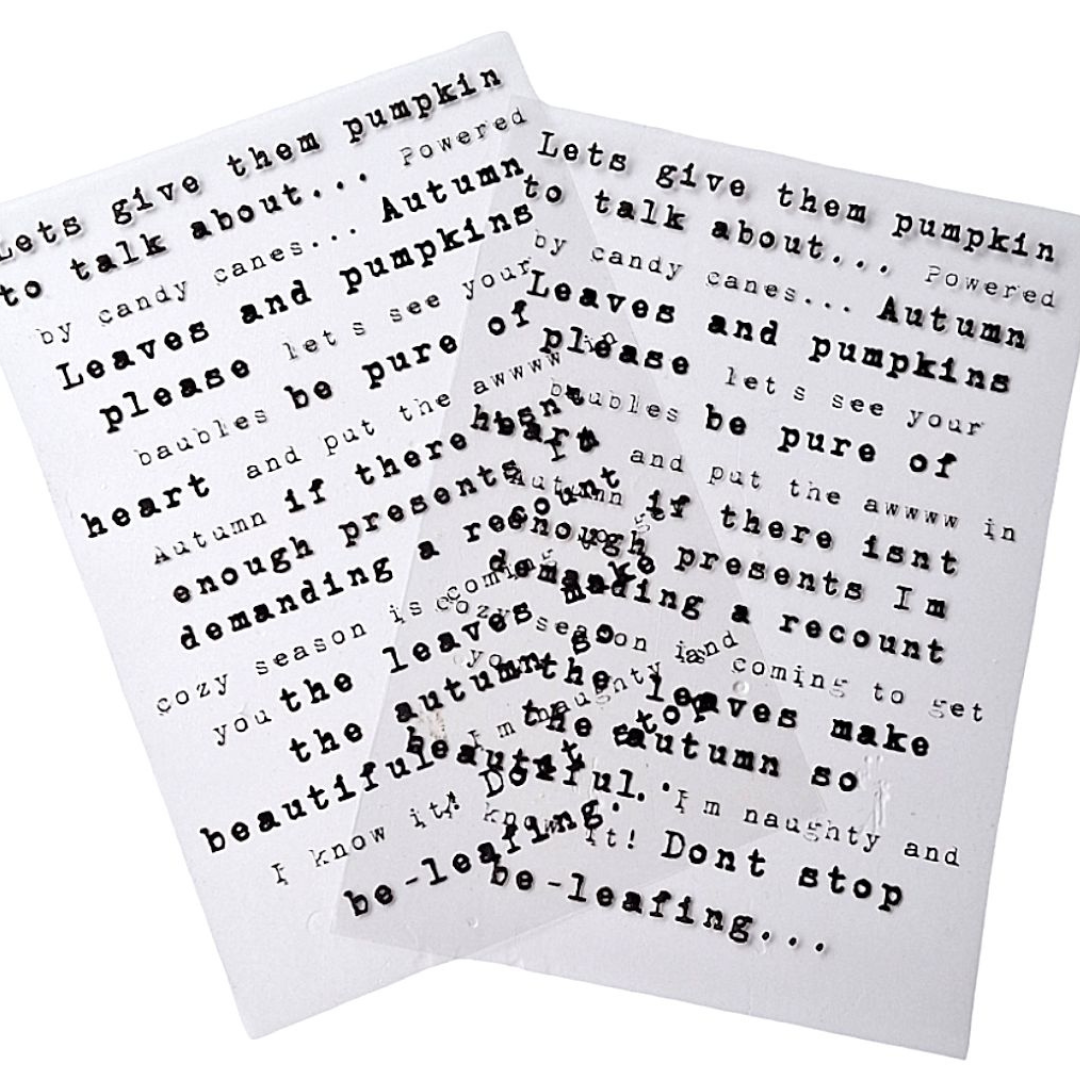 Lets give them pumpkin
to talk about... Powered
by candy canes... Autumn
Leaves and pumpkins
please let s see your
baubles be pure of
heart and put the awwww in
Autumn if there isnt
enough presents I
demanding a recount
cozy season is coming
you the leaves
the autumn so
beautiful. I m naughty and
I know it! Dont stop
be-leafing.
Lets give them pumpkin
to talk about... Powered
by candy canes... Autumn
Leaves and pumpkins
please let s see your
baubles be pure of
heart and put the awwww in
Autumn if there isnt
enough presents Im
demanding a recount
cozy season is coming to get
you the leaves make
the autumn so
beautiful. I m naughty and
I know it! Dont stop
be-leafing...